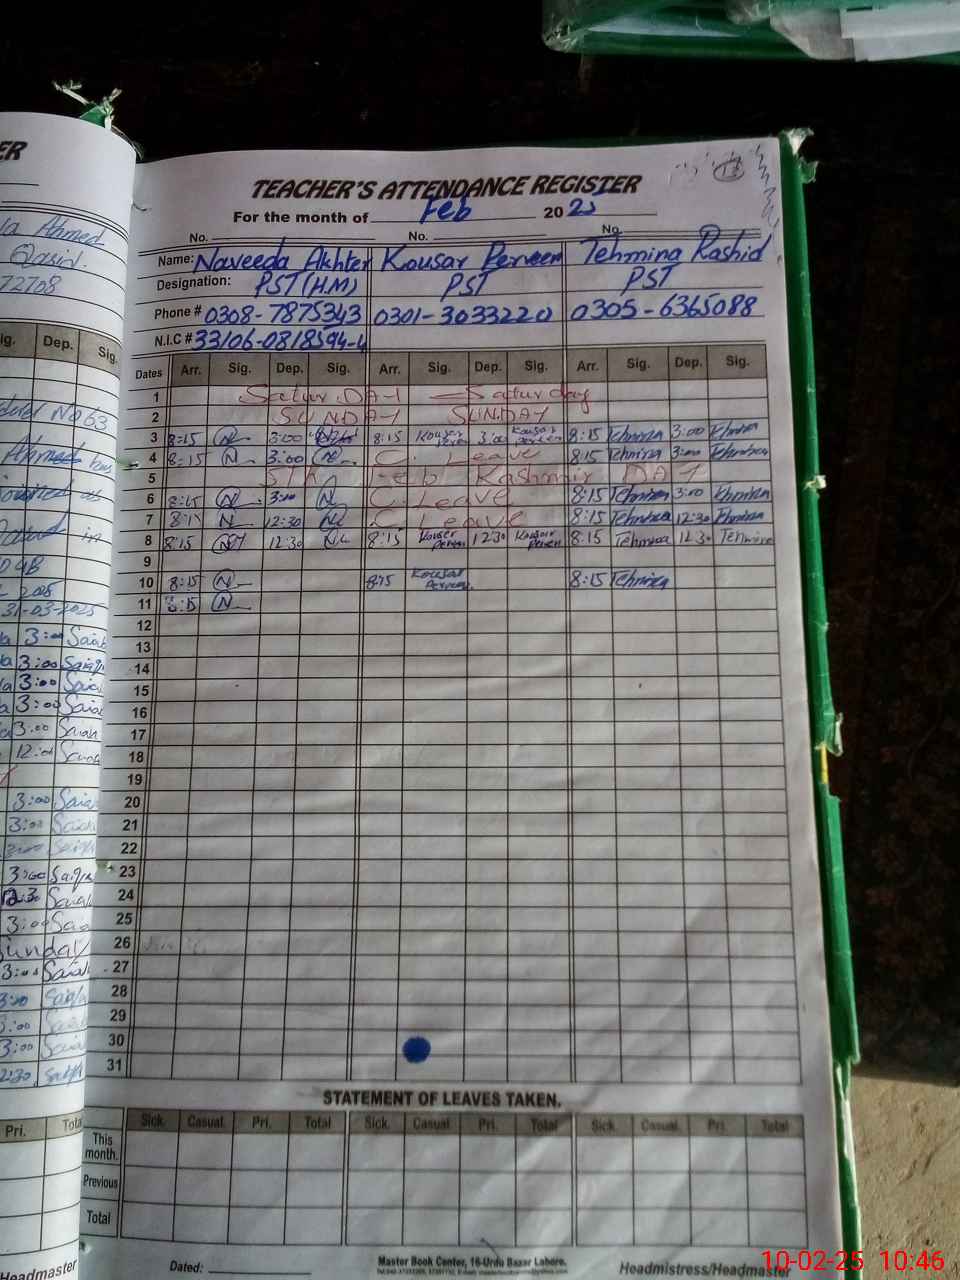 TEACHER'S ATTENDANCE REGISTER
For the month of Feb 2025
No. No. No.
Name: Naveeda Akhter Kousar Perveen Tehmina Rashid
Designation: PST (H.M) PST PST
Phone # 0308-7875343 0301-3033220 0305-6365088
N.I.C # 33106-0818594-4
Dates Arr. Sig. Dep. Sig. Arr. Sig. Dep. Sig. Arr. Sig. Dep. Sig.
1 Satur.DAY Saturday
2 SUNDAY SUNDAY
3 8:15 N 3:00 8:15 Kousar Perveen 3:00 Kousar Perveen 8:15 Tehmina 3:00 Tehmina
4 8:15 N 3:00 N C. Leave 8:15 Tehmina 3:00 Tehmina
5 5th Feb Kashmir DAY
6 8:15 N 3:00 N C. Leave 8:15 Tehmina 3:00 Tehmina
7 8:15 N 12:30 N C. Leave 8:15 Tehmina 12:30 Tehmina
8 8:15 N 12:30 N 8:15 Kousar Perveen 12:30 Kousar Perveen 8:15 Tehmina 12:30 Tehmina
9
10 8:15 N 8:15 Kousar Perveen. 8:15 Tehmina
11 8:15 N
12
13
14
15
16
17
18
19
20
21
22
23
24
25
26
27
28
29
30
31
STATEMENT OF LEAVES TAKEN.
Sick. Casual. Pri. Total Sick. Casual Pri. Total Sick. Casual. Pri. Total
This month.
Previous
Total
Dated:
Master Book Center, 16-Urdu Bazar Lahore.
Headmistress/Headmaster
10-02-25 10:46
ER
Ahmed
Qasir.
72708
Sig. Dep. Sig.
No 63
31-03-2025
3:00
3:00
3:00
3:00
3:00
12:00
3:00
3:00
3:00
3:00
12:30
3:00
Sunday
3:00
3:00
3:00
3:00
12:30
Pri. Total
Headmaster